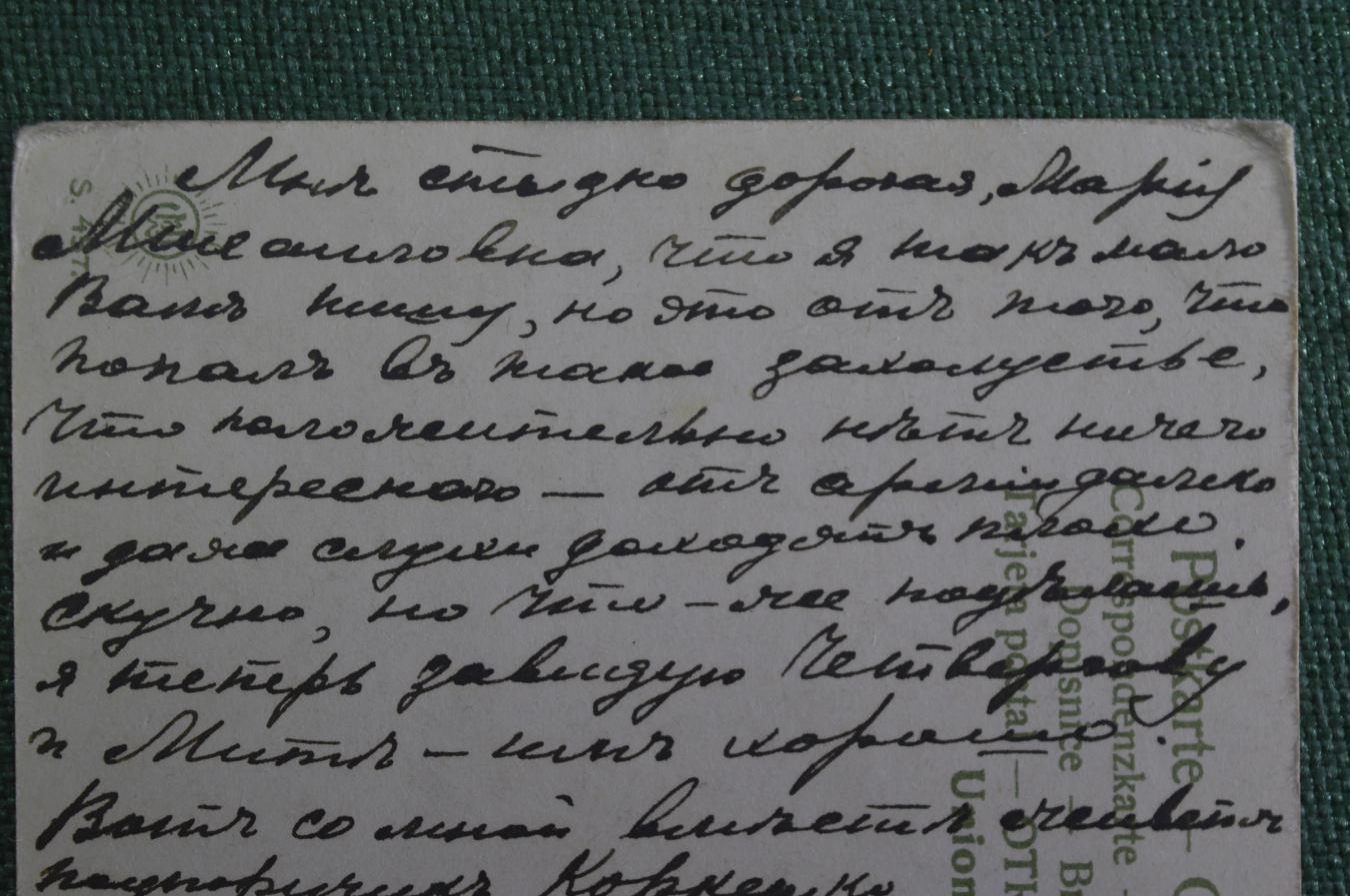 Мнѣ стыдно дорогая, Марія
Михаиловна, что я такъ мало
Вамъ пишу, но это отъ того, что
попалъ въ такое захолустье,
что положительно нѣтъ ничего
интереснаго — отъ арміи далеко
и даже слухи доходятъ плохо.
Скучно, но что-же подѣлаешь,
я теперь завидую Четвергову
и Митѣ — имъ хорошо.
Вотъ со мной вмѣстѣ живетъ
подпоручикъ
Postkarte —
Correspondenzkarte
Dopisnice —
Tarjeta postal —
Union
S.